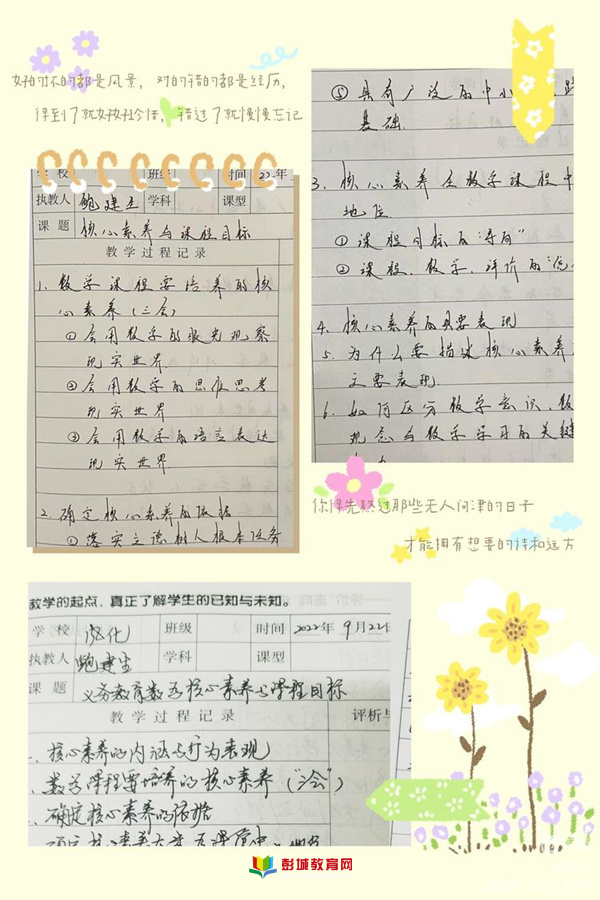 好的坏的都是风景，对的错的都是经历，
得到了就好好珍惜，错过了就慢慢忘记
学 校 班级 时间 2022.年
执教人 鲍建生 学科 课型
课 题 核心素养与课程目标
教 学 过 程 记 录
1. 数学课程要培养的核
心素养（三会）
①会用数学的眼光观察
现实世界
②会用数学的思维思考
现实世界
③会用数学的语言表达
现实世界
2. 确定核心素养的依据
①落实立德树人根本任务
⑤具有广泛的中小
基础.
3. 核心素养在数学课程中
地位
①课程目标的"导向"
②课程、教学、评价的
4. 核心素养的主要表现
5. 为什么要描述核心素养
主要表现
6. 如何区分数学意识、数
观念与数学学习的关键
你得先熬过那些无人问津的日子
才能拥有想要的诗和远方
教学的起点，真正了解学生的已知与未知。
学 校 班级 时间 2022年 9月22日
执教人 鲍建生 学科 课型
课 题 义务教育数学核心素养与课程目标
教 学 过 程 记 录 评析与
一、核心素养的内涵与行为表现
、数学课程要培养的核心素养（"三会"）
、确定核心素养的依据
彭城教育网